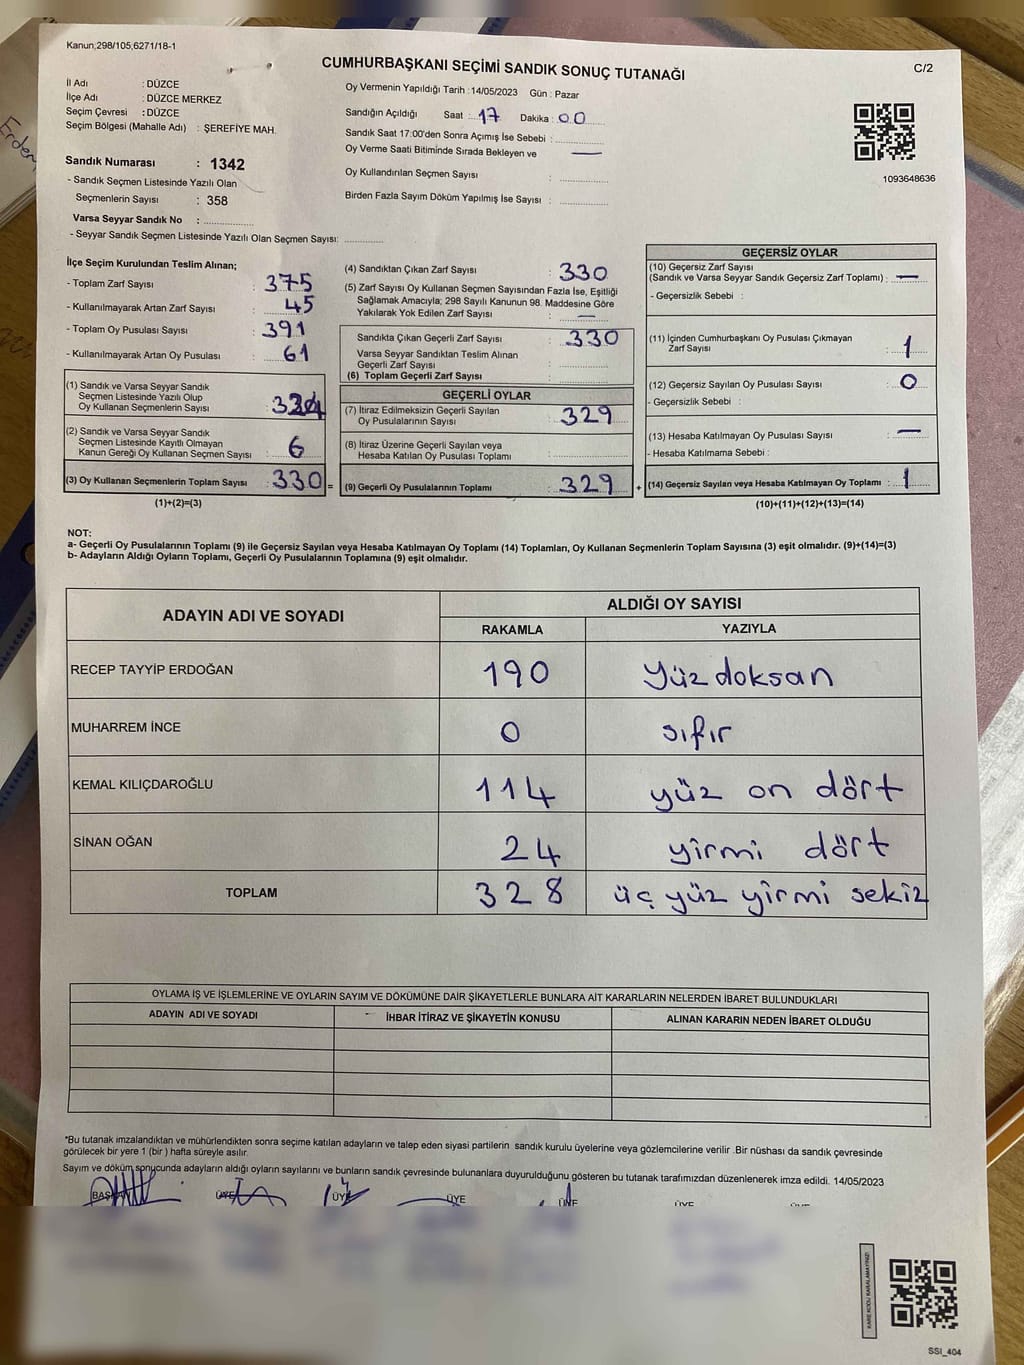 Kanun;298/105,6271/18-1
CUMHURBAŞKANI SEÇİMİ SANDIK SONUÇ TUTANAĞI
C/2
İl Adı : DÜZCE
İlçe Adı : DÜZCE MERKEZ
Seçim Çevresi : DÜZCE
Seçim Bölgesi (Mahalle Adı) : ŞEREFİYE MAH.
Sandık Numarası : 1342
- Sandık Seçmen Listesinde Yazılı Olan
Seçmenlerin Sayısı : 358
Varsa Seyyar Sandık No : ..............
- Seyyar Sandık Seçmen Listesinde Yazılı Olan Seçmen Sayısı: ............
Oy Vermenin Yapıldığı Tarih : 14/05/2023 Gün : Pazar
Sandığın Açıldığı Saat : 17 Dakika : 00
Sandık Saat 17:00'den Sonra Açımış İse Sebebi : ..............
Oy Verme Saati Bitiminde Sırada Bekleyen ve —
Oy Kullandırılan Seçmen Sayısı : ..............
Birden Fazla Sayım Döküm Yapılmış İse Sayısı : ..............
1093648636
İlçe Seçim Kurulundan Teslim Alınan;
- Toplam Zarf Sayısı : 375
- Kullanılmayarak Artan Zarf Sayısı : 45
- Toplam Oy Pusulası Sayısı : 391
- Kullanılmayarak Artan Oy Pusulası : 61
(1) Sandık ve Varsa Seyyar Sandık
Seçmen Listesinde Yazılı Olup
Oy Kullanan Seçmenlerin Sayısı : 324
(2) Sandık ve Varsa Seyyar Sandık
Seçmen Listesinde Kayıtlı Olmayan
Kanun Gereği Oy Kullanan Seçmen Sayısı : 6
(3) Oy Kullanan Seçmenlerin Toplam Sayısı : 330 =
(1)+(2)=(3)
(4) Sandıktan Çıkan Zarf Sayısı : 330
(5) Zarf Sayısı Oy Kullanan Seçmen Sayısından Fazla İse, Eşitliği
Sağlamak Amacıyla; 298 Sayılı Kanunun 98. Maddesine Göre
Yakılarak Yok Edilen Zarf Sayısı : —
Sandıkta Çıkan Geçerli Zarf Sayısı : 330
Varsa Seyyar Sandıktan Teslim Alınan
Geçerli Zarf Sayısı : ..............
(6) Toplam Geçerli Zarf Sayısı : ..............
GEÇERLİ OYLAR
(7) İtiraz Edilmeksizin Geçerli Sayılan
Oy Pusulalarının Sayısı : 329
(8) İtiraz Üzerine Geçerli Sayılan veya
Hesaba Katılan Oy Pusulası Toplamı : ..............
(9) Geçerli Oy Pusulalarının Toplamı : 329 +
GEÇERSİZ OYLAR
(10) Geçersiz Zarf Sayısı
(Sandık ve Varsa Seyyar Sandık Geçersiz Zarf Toplamı) : —
- Geçersizlik Sebebi :
(11) İçinden Cumhurbaşkanı Oy Pusulası Çıkmayan
Zarf Sayısı : 1
(12) Geçersiz Sayılan Oy Pusulası Sayısı : 0
- Geçersizlik Sebebi :
(13) Hesaba Katılmayan Oy Pusulası Sayısı : —
- Hesaba Katılmama Sebebi :
(14) Geçersiz Sayılan veya Hesaba Katılmayan Oy Toplamı : 1
(10)+(11)+(12)+(13)=(14)
NOT:
a- Geçerli Oy Pusulalarının Toplamı (9) ile Geçersiz Sayılan veya Hesaba Katılmayan Oy Toplamı (14) Toplamları, Oy Kullanan Seçmenlerin Toplam Sayısına (3) eşit olmalıdır. (9)+(14)=(3)
b- Adayların Aldığı Oyların Toplamı, Geçerli Oy Pusulalarının Toplamına (9) eşit olmalıdır.
ADAYIN ADI VE SOYADI
ALDIĞI OY SAYISI
RAKAMLA YAZIYLA
RECEP TAYYİP ERDOĞAN 190 yüz doksan
MUHARREM İNCE 0 sıfır
KEMAL KILIÇDAROĞLU 114 yüz on dört
SİNAN OĞAN 24 yirmi dört
TOPLAM 328 üç yüz yirmi sekiz
OYLAMA İŞ VE İŞLEMLERİNE VE OYLARIN SAYIM VE DÖKÜMÜNE DAİR ŞİKAYETLERLE BUNLARA AİT KARARLARIN NELERDEN İBARET BULUNDUKLARI
ADAYIN ADI VE SOYADI İHBAR İTİRAZ VE ŞİKAYETİN KONUSU ALINAN KARARIN NEDEN İBARET OLDUĞU
*Bu tutanak imzalandıktan ve mühürlendikten sonra seçime katılan adayların ve talep eden siyasi partilerin sandık kurulu üyelerine veya gözlemcilerine verilir .Bir nüshası da sandık çevresinde
görülecek bir yere 1 (bir ) hafta süreyle asılır.
Sayım ve döküm sonucunda adayların aldığı oyların sayılarını ve bunların sandık çevresinde bulunanlara duyurulduğunu gösteren bu tutanak tarafımızdan düzenlenerek imza edildi. 14/05/2023
BAŞKAN ÜYE ÜYE ÜYE ÜYE ÜYE ÜYE
KARE KODU KARALAMAYINIZ!
SSI_404
Erdem